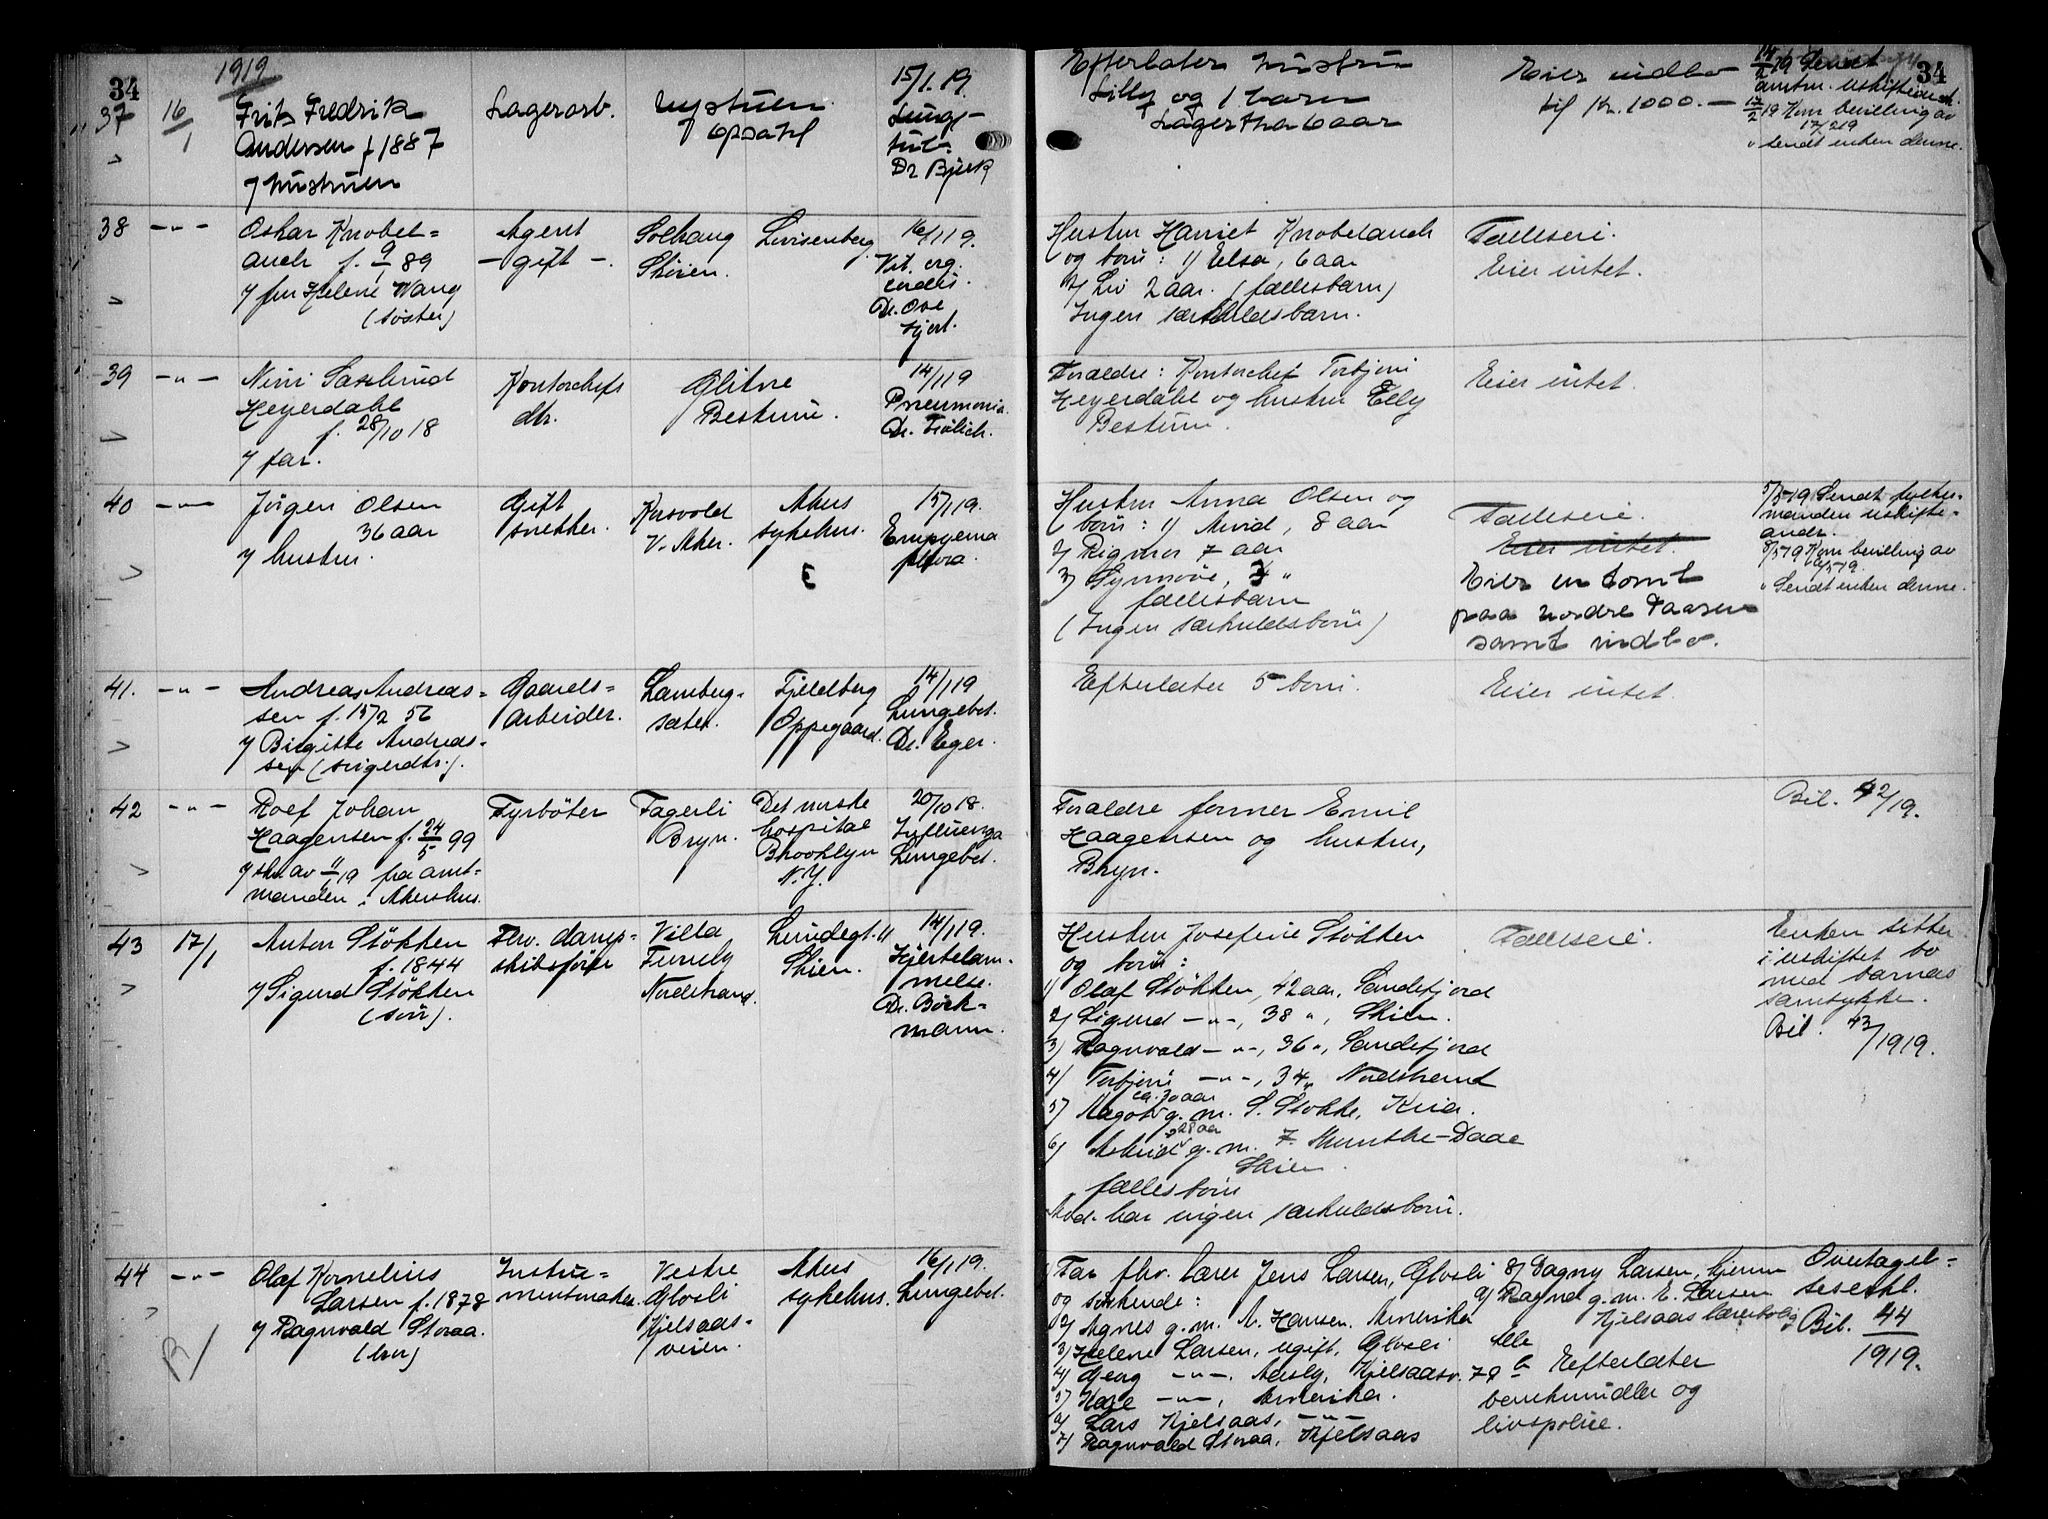 34
1919
37
16/1
Frits Fredrik
Andersen f 1887
v/ hustruen
Lagerarb.
Nystuen
Opsahl
15/1.19.
Lunge-
tub.
Dr Bjerk
38
-"-
Oskar Knobel=
auch f. 9/1 89
v/ fru Helene Wang
(søster)
Agent
- gift -.
Solhaug
Skøien.
Lovisenberg.
16/1 19.
Vit. org.
cordis.
Dr. Ove
Hjort.
39
-"-
Nini Saxlund
Heyerdahl
f. 28/10 18
v/ far.
Kontorchefs
dtr.
Glitne
Bestum.
14/1 19
Pneumonia.
Dr. Frølich.
40
-"-
Jørgen Olsen
36 aar
v/ hustru
Gift
snekker.
Korsvold
V. Aker.
Akers
sykehus.
15/1 19.
Empyema
41.
-"-
Andreas Andreas=
sen f. 15/2 56
v/ Birgitte Andreas-
sen (svigerdtr.).
Gaards=
arbeider.
Lamberg-
sæter.
Fjeldberg
Oppegaard.
14/1 19
Lungebet.
Dr. Eger.
42
-"-
Rolf Johan
Haagensen f. 24/5 99
v/ skr. av 11/1 19 fra amt-
manden i Akershus.
Fyrbøter
Fagerli
Bryn.
Det norske
hospital
Brooklyn
N.Y.
20/10 18.
Influenza
Lungebet.
43
17/1
Anton Stökken
f. 1844
v/ Sigurd Stökken
(søn).
Fhv. damp-
skibsfører
Villa
Furuly
Nordstrand.
Lundegt. 11
Skien.
14/1 19.
Hjertelam-
melse.
Dr. Böck-
mann.
44
-"-
Olaf Kornelius
Larsen f. 1878
v/ Ragnvald Storaa.
(bror)
Instru=
mentmaker.
Vestre
Glosli
Kjelsaas-
veien.
Akers
sykehus.
16/1 19.
Lungebet.
34
Efterlater hustru
Lilly og 1 barn
Lagertha 6 aar
Eier indbo
til Kr. 1000.-
14/2 19 Sendt
amtm. uskifteandr.
17/2 19 Kom bevilling av
17/2 19
" sendt enken denne.
Hustru Harriet Knobelauch
og børn: 1/ Elsa, 6 aar
2/ Liv 2 aar. (fællesbarn)
Ingen særkuldsbarn.
Fælleseie.
Eier intet.
Foraldre: Kontorchef Torbjørn
Heyerdahl og hustru Elly
Bestum.
Eier intet.
Hustru Anna Olsen og
børn: 1/ Arvid, 8 aar
2/ Rigmor 7 aar
3/ Synnøve, "
fællesbarn
(Ingen særkuldsbørn)
Fælleseie.
Eier intet.
Eier en tomt
paa nordre Taasen
samt indbo.
5/5 19 Sendt fylkes-
manden uskifte=
andr.
8/5 19 Kom bevilling av
" Sendt enken denne.
Efterlater 5 børn.
Eier intet.
Foraldre former Emil
Haagensen og hustru,
Bryn.
Bil. 42/19.
Hustru Josefine Stökken
og børn:
1/ Olaf Stökken, 42 aar, Sandefjord
2/ Sigurd -"-, 38 ", Skien.
3/ Ragnvald -"-, 36 ", Sandefjord
4/ Torbjørn -"-, 34 " Nordstrand
ca. 30 aar
5/ Magot g.m. S. Stokke, Kria.
28 aar
6/ Astrid g.m. F. Munthe-Daae
Skien.
fællesbørn
Avd. har ingen særkuldsbørn.
Fælleseie.
Enken sitter
i uskiftet bo
med barnas
samtykke.
Bil. 43/1919.
1/ Far fhv. lærer Jens Larsen, Glosli
og søskende:
2/ Agnes g.m. A. Hansen. Amerika
3/ Helene Larsen, ugift, Glosli
4/ Georg -"-. Aasly, Kjelsaasv. 78 b
5/ Kaze -"-, Amerika.
6/ Lars Kjelsaas, -"-
7/ Ragnvald Storaa, Kjelsaas
8/ Dagny Larsen, hjemme
9/ Ragna g.m. E. Larsen
Kjelsaas lærerbolig
Alle
Efterlater
bankmidler og
livspolice.
Overtagel=
seserkl.
Bil. 44/1919.